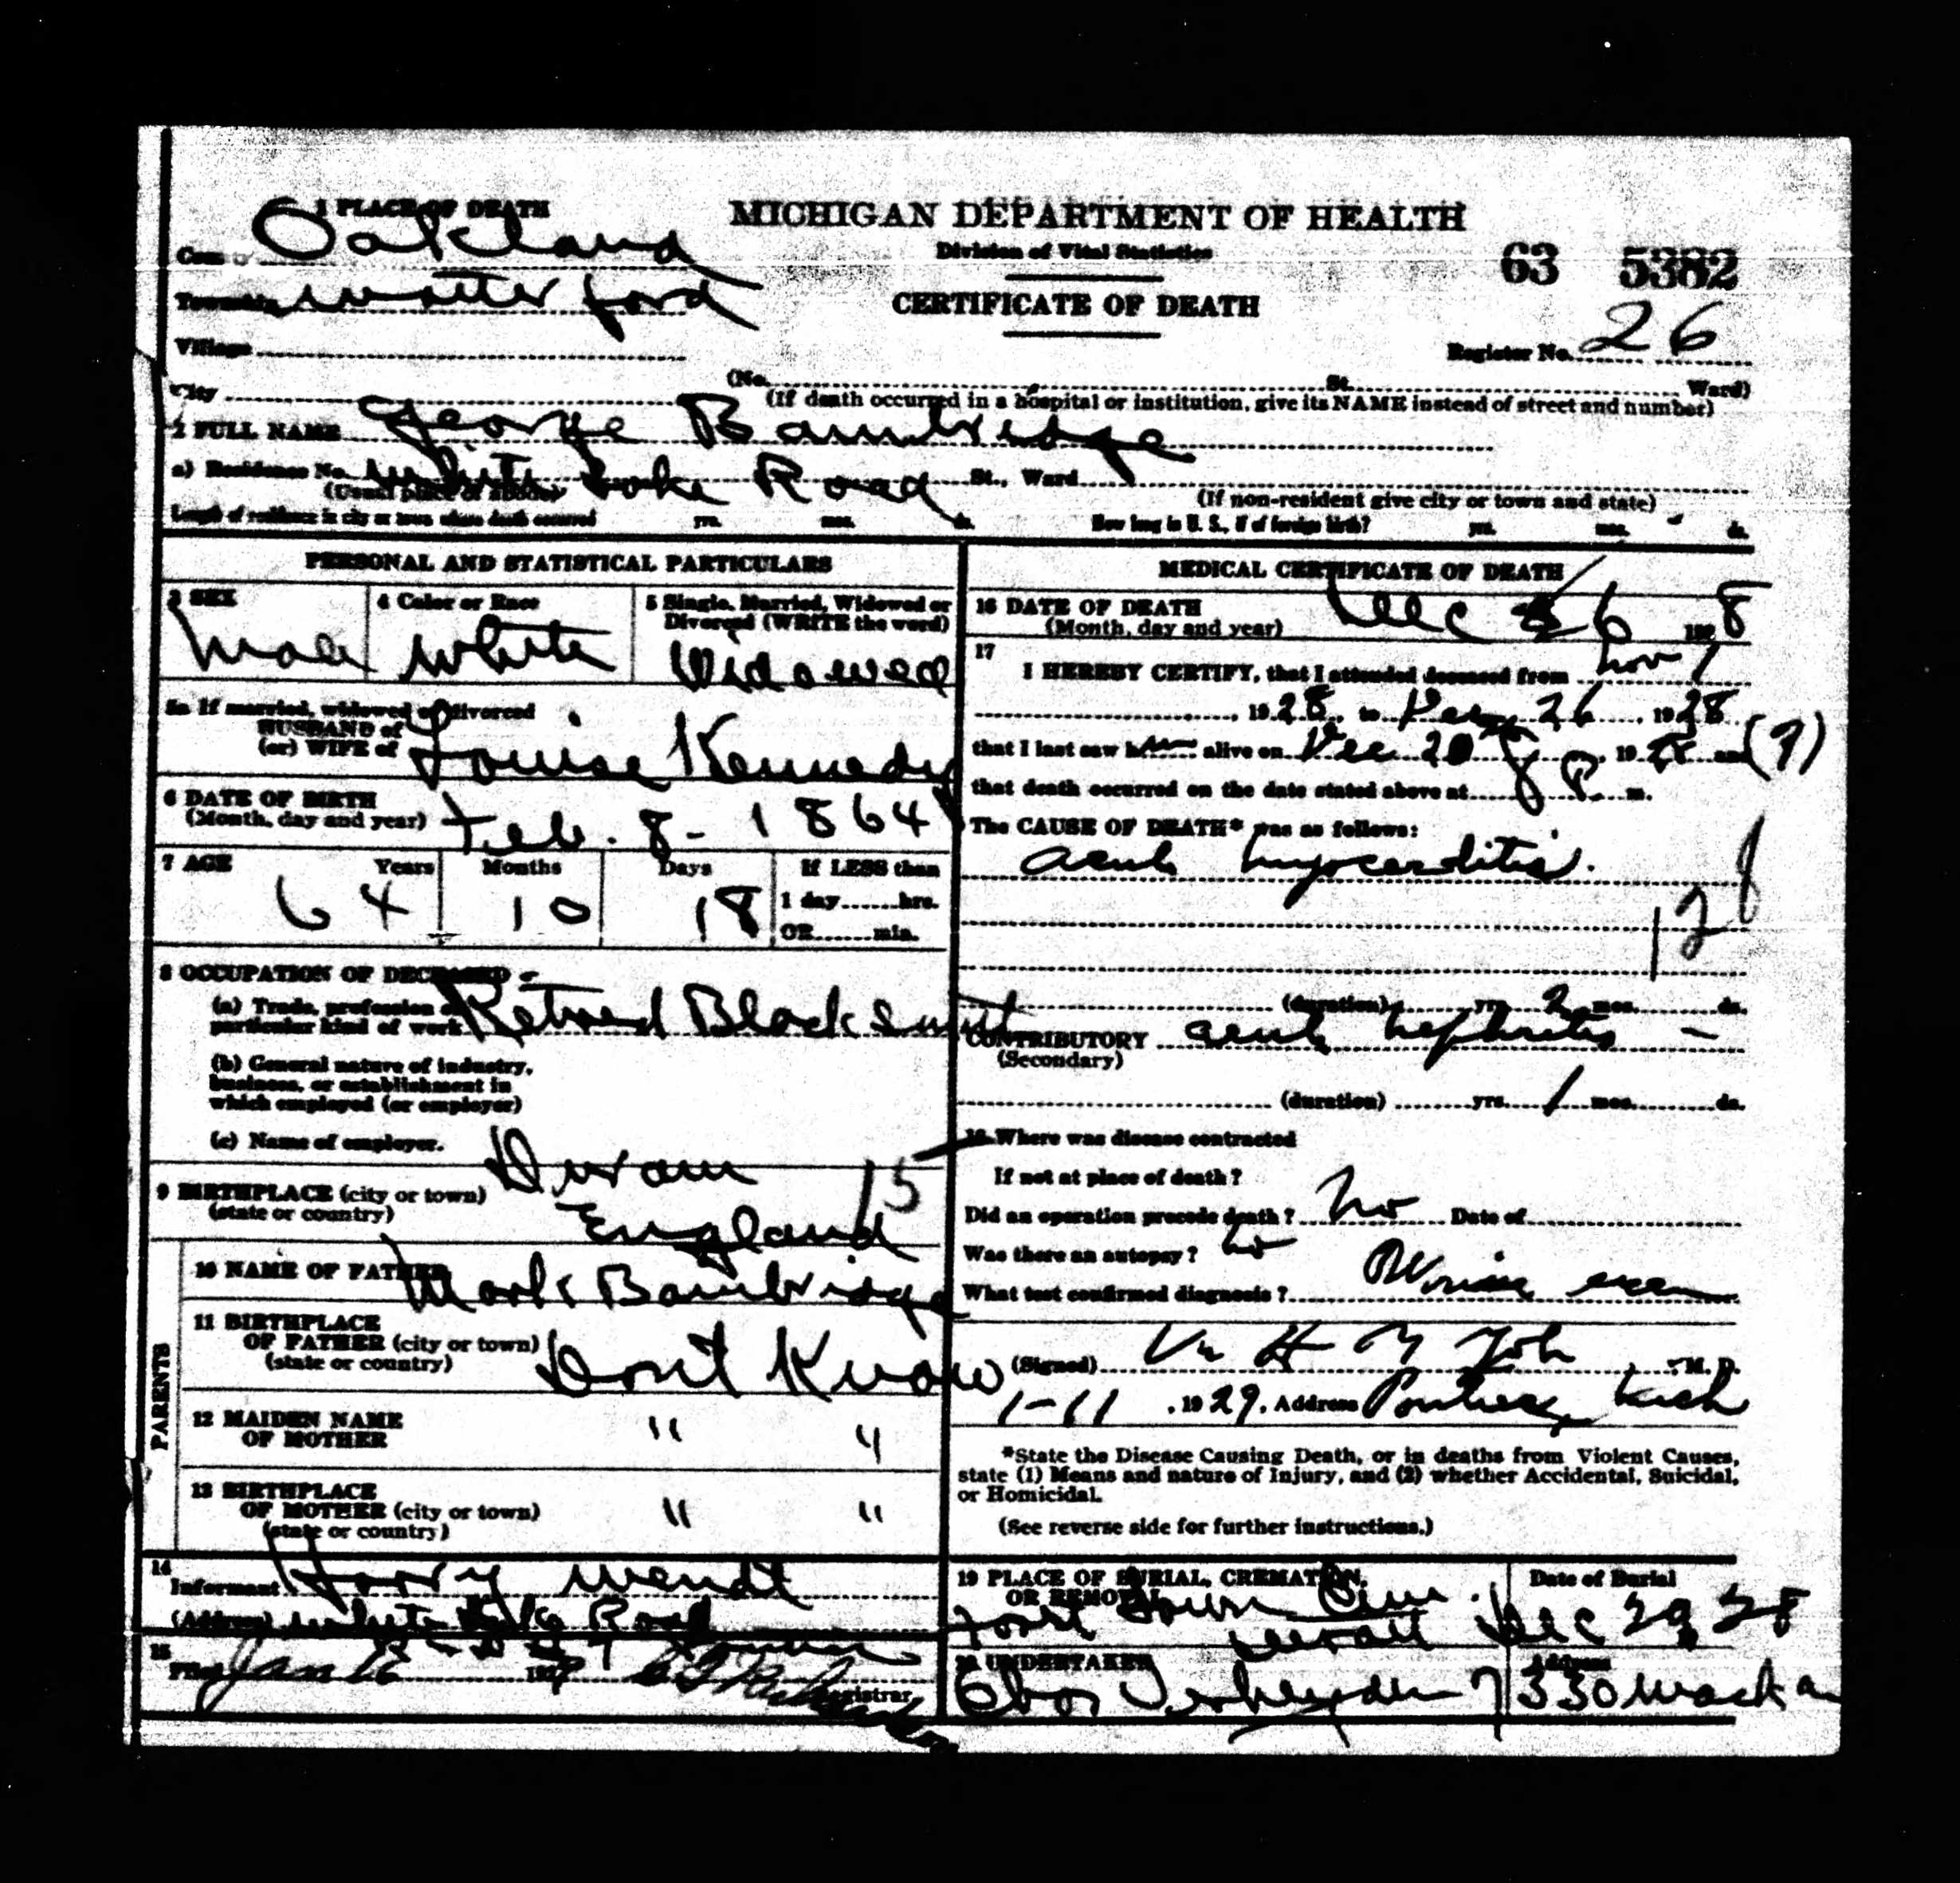 1 PLACE OF DEATH
MICHIGAN DEPARTMENT OF HEALTH
Division of Vital Statistics
County Oakland
63 5382
Township Watterford
CERTIFICATE OF DEATH
Village
Register No. 26
City (No. St. Ward)
(If death occurred in a hospital or institution, give its NAME instead of street and number)
2 FULL NAME George Bambridge
a) Residence No. White Lake Road St., Ward
(Usual place of abode) (If non-resident give city or town and state)
Length of residence in city or town where death occurred yrs. mos. ds. How long in U. S., if of foreign birth? yrs. mos. ds.
PERSONAL AND STATISTICAL PARTICULARS
3 SEX 4 Color or Race 5 Single, Married, Widowed or
Divorced (WRITE the word)
Male White Widowed
5a If married, widowed or divorced
HUSBAND of
(or) WIFE of Louise Kennedy
6 DATE OF BIRTH
(Month, day and year) Feb. 8 - 1864
7 AGE Years Months Days If LESS than
64 10 18 1 day hrs.
OR min.
8 OCCUPATION OF DECEASED
(a) Trade, profession or
particular kind of work Retired Black Smith
(b) General nature of industry,
business, or establishment in
which employed (or employer)
(c) Name of employer.
15
9 BIRTHPLACE (city or town) Duram
(state or country) England
PARENTS
10 NAME OF FATHER Mark Bambridge
11 BIRTHPLACE
OF FATHER (city or town)
(state or country) Dont Know
12 MAIDEN NAME
OF MOTHER " "
13 BIRTHPLACE
OF MOTHER (city or town) " "
(state or country)
14
Informant Harry Wendt
(Address) White Lake Road
15
Filed Jan 192 Registrar
MEDICAL CERTIFICATE OF DEATH
16 DATE OF DEATH Dec 26 1928
(Month, day and year)
17
I HEREBY CERTIFY, that I attended deceased from Nov 1
, 1928, to Dec 26, 1928
that I last saw him alive on Dec 20, 1928 and (?)
that death occurred on the date stated above at 8 P. m.
The CAUSE OF DEATH* was as follows:
acute myocarditis.
128
(duration) yrs. 2 mos. ds.
CONTRIBUTORY acute nephritis -
(Secondary)
(duration) yrs. 1 mos. ds.
18 Where was disease contracted
If not at place of death?
Did an operation precede death? No Date of
Was there an autopsy? No
What test confirmed diagnosis? Urine exam
(Signed) M. D.
1-11, 1929, Address Pontiac, Mich
*State the Disease Causing Death, or in deaths from Violent Causes,
state (1) Means and nature of Injury, and (2) whether Accidental, Suicidal,
or Homicidal.
(See reverse side for further instructions.)
19 PLACE OF BURIAL, CREMATION, Date of Burial
OR REMOVAL
Forest Lawn Cem.
Detroit Dec 29, 28
20 UNDERTAKER Address
Chas Verheyden 7330 Mack av